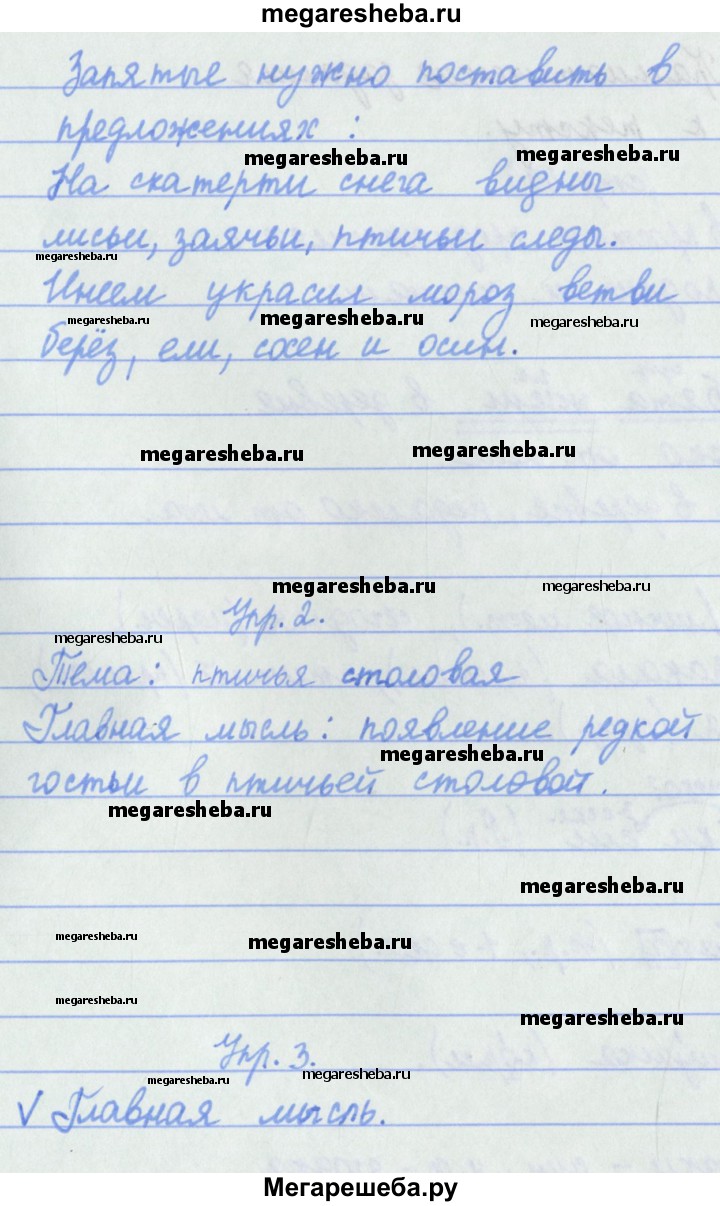 megaresheba.ru
Запятые нужно поставить в
предложениях:
megaresheba.ru megaresheba.ru
На скатерти снега видны
лисьи, заячьи, птичьи следы.
megaresheba.ru
Инеем украсил мороз ветви
megaresheba.ru megaresheba.ru megaresheba.ru
берёз, ели, сосен и осин.
megaresheba.ru megaresheba.ru
megaresheba.ru megaresheba.ru
Упр. 2.
megaresheba.ru
Тема: птичья столовая
Главная мысль: появление редкой
megaresheba.ru
гостьи в птичьей столовой.
megaresheba.ru
megaresheba.ru
megaresheba.ru megaresheba.ru
megaresheba.ru
megaresheba.ru
Упр. 3.
megaresheba.ru megaresheba.ru
√ Главная мысль.
Мегарешеба.ру